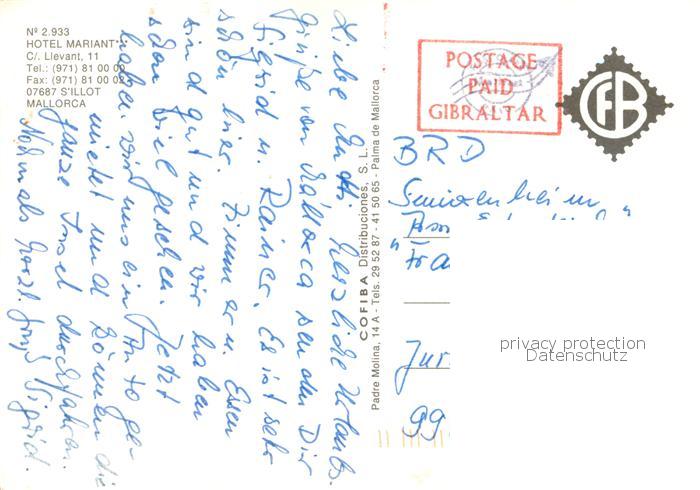 Nº 2.933
HOTEL MARIANT
C/. Llevant, 11
Tel.: (971) 81 00 00
Fax: (971) 81 00 02
07687 S'ILLOT
MALLORCA
Liebe Mutti. Herzliche Urlaubs-
grüße von Mallorca senden Dir
Sigrid u. Rainer. Es ist sehr
schön hier. Zimmer u. Essen
sind gut und wir haben
schon viel gesehen. Jetzt
haben wir uns ein Auto ge-
mietet und können die
ganze Insel durchfahren.
Nochmals herzl. Grüße Sigrid.
COFIBA Distribuciones, S. L.
Padre Molina, 14 A - Tels. 29 52 87 - 41 50 65 - Palma de Mallorca
POSTAGE
PAID
GIBRALTAR
CFB
BRD
Seniorenheim
"Fra
99
privacy protection
Datenschutz